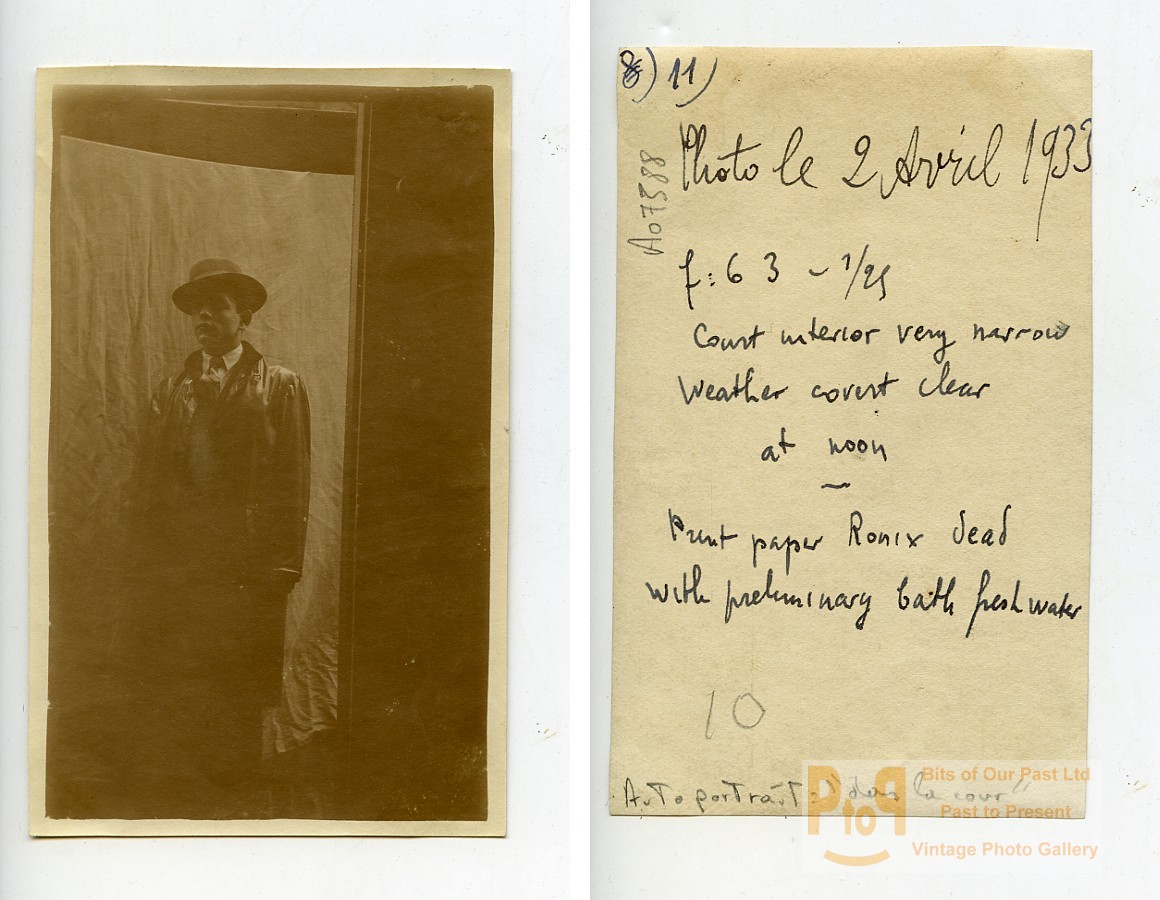 8) 11)
Photo le 2 Avril 1933
A07388
f: 6 3 - 1/25
Court interior very narrow
Weather covert clear
at noon
Print paper Ronix dead
with preliminary bath fresh water
10
Autoportrait - "dans la cour"
PtoP
Bits of Our Past Ltd
Past to Present
Vintage Photo Gallery